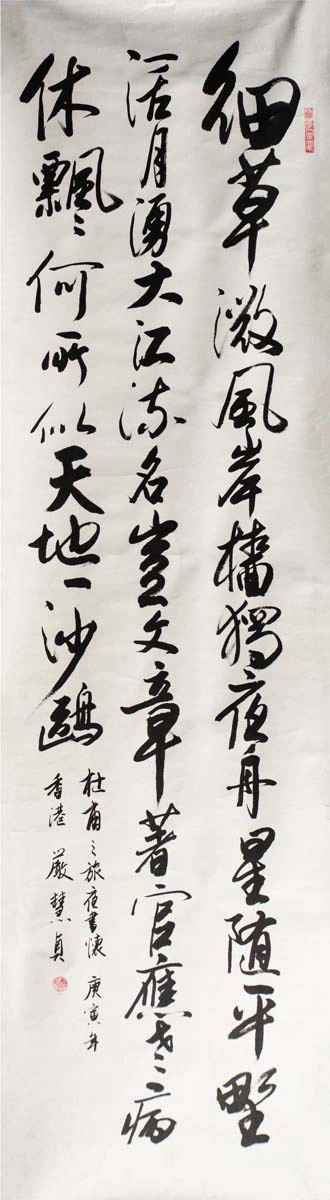 細草微風岸檣獨夜舟星隨平野
闊月湧大江流名豈文章著官應老病
休飄〻何所似天地一沙鷗
杜甫之旅夜書懷 庚寅年
香港 嚴慧貞